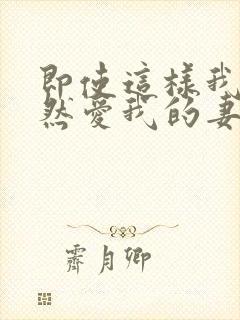 即使這樣我
然愛我的妻
霽月卿